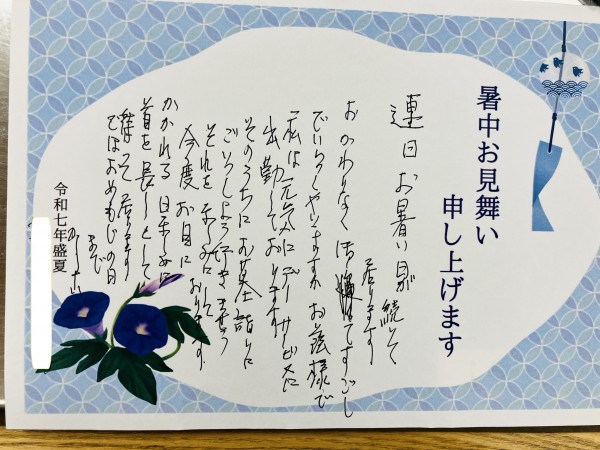 暑中お見舞い
申し上げます
連日お暑い日が続いて
居ります
おかわりなく御機げんですごし
でいらしゃいますか お蔭様で
私は元気にデーサービスに
出勤しております
そのうちにお墓詣りに
ごいっしょう行きましょう
それを楽みにして
今度お目に
かかれる日を
首を長くして
待って居ります
ではおめもじの日
まで
かしこ
令和七年盛夏